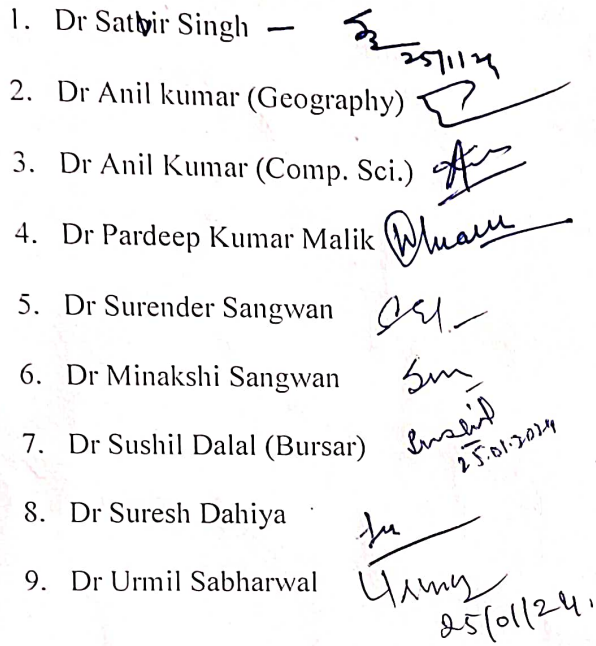 1. Dr Satbir Singh –
25/1/24
2. Dr Anil kumar (Geography)
3. Dr Anil Kumar (Comp. Sci.)
4. Dr Pardeep Kumar Malik
5. Dr Surender Sangwan
6. Dr Minakshi Sangwan
7. Dr Sushil Dalal (Bursar) Sushil
25.01.2024
8. Dr Suresh Dahiya
9. Dr Urmil Sabharwal
25/01/24.